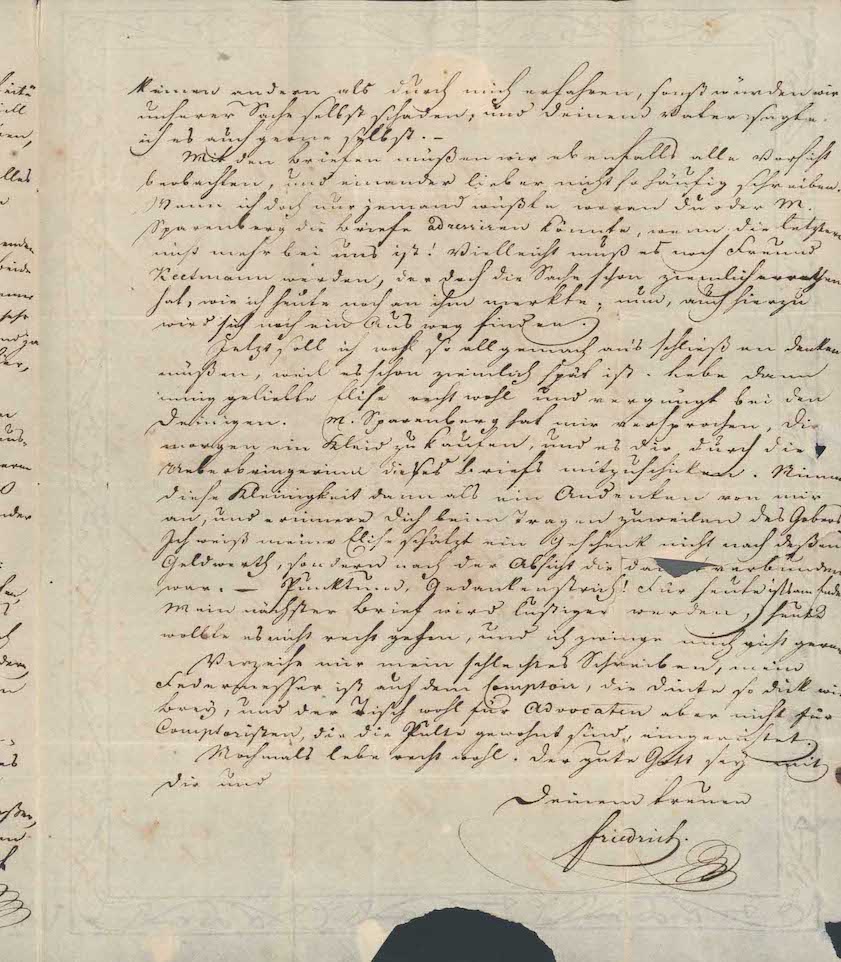 keinen andern als durch mich erfahren, sonst würden wir
unserer Sache selbst schaden, und Deinem Vater sagte
ich es auch gerne selbst. –
Mit den Briefen müßen wir ebenfalls alle Vorsicht
beobachten, und einander lieber nicht so häufig schreiben.
Wenn ich doch nur jemand wüßte woran du oder M.
Sparenberg die Briefe adressiren könnte, wenn die letztere
nicht mehr bei uns ist! Vielleicht muß es noch Freund
Keetmann werden, der doch die Sache schon ziemlich errathen
hat, wie ich heute noch an ihm merkte; nun, auch hierzu
wird sich noch ein Ausweg finden.
Jetzt soll ich wohl so allgemach an's schließen denken
müßen, weil es schon ziemlich spät ist. Lebe dann
innig geliebte Elise recht wohl und vergnügt bei den
Deinigen. M. Sparenberg hat mir versprochen, Dir
morgen ein Kleid zu kaufen, und es Dir durch die
Ueberbringerinn dieses Briefs mitzuschicken. Nimm
diese Kleinigkeit dann als ein Andenken von mir
an, und erinnere Dich beim Tragen zuweilen des Gebers
Ich weiß meine Elise schätzt ein Geschenk nicht nach deßen
Geldwerth, sondern nach der Absicht die verbunden
war. – Punktum, Gedankenstrich! Für heute ists am Ende
Mein nächster Brief wird lustiger werden, heute
wollte es nicht recht gehen, und ich zwinge mich nicht gerne
Verzeihe mir mein schlechtes Schreiben, mein
Federmesser ist auf dem Comptoir, die Dinte so dick wie
Brey, und der Tisch wohl für Advocaten aber nicht für
Comptoristen, die die Pulte gewohnt sind, eingerichtet.
Nochmals lebe recht wohl. Der gute Gott sey mit
Dir und
Deinem treuen
Friedrich.